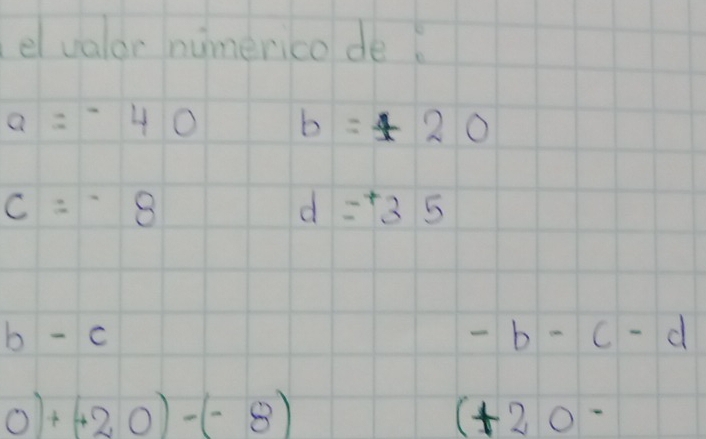 el valor númerico de :
a = - 40 b = + 20
c = - 8 d = +35
b - c - b - c - d
0) + (+20) - (- 8) (+20 -